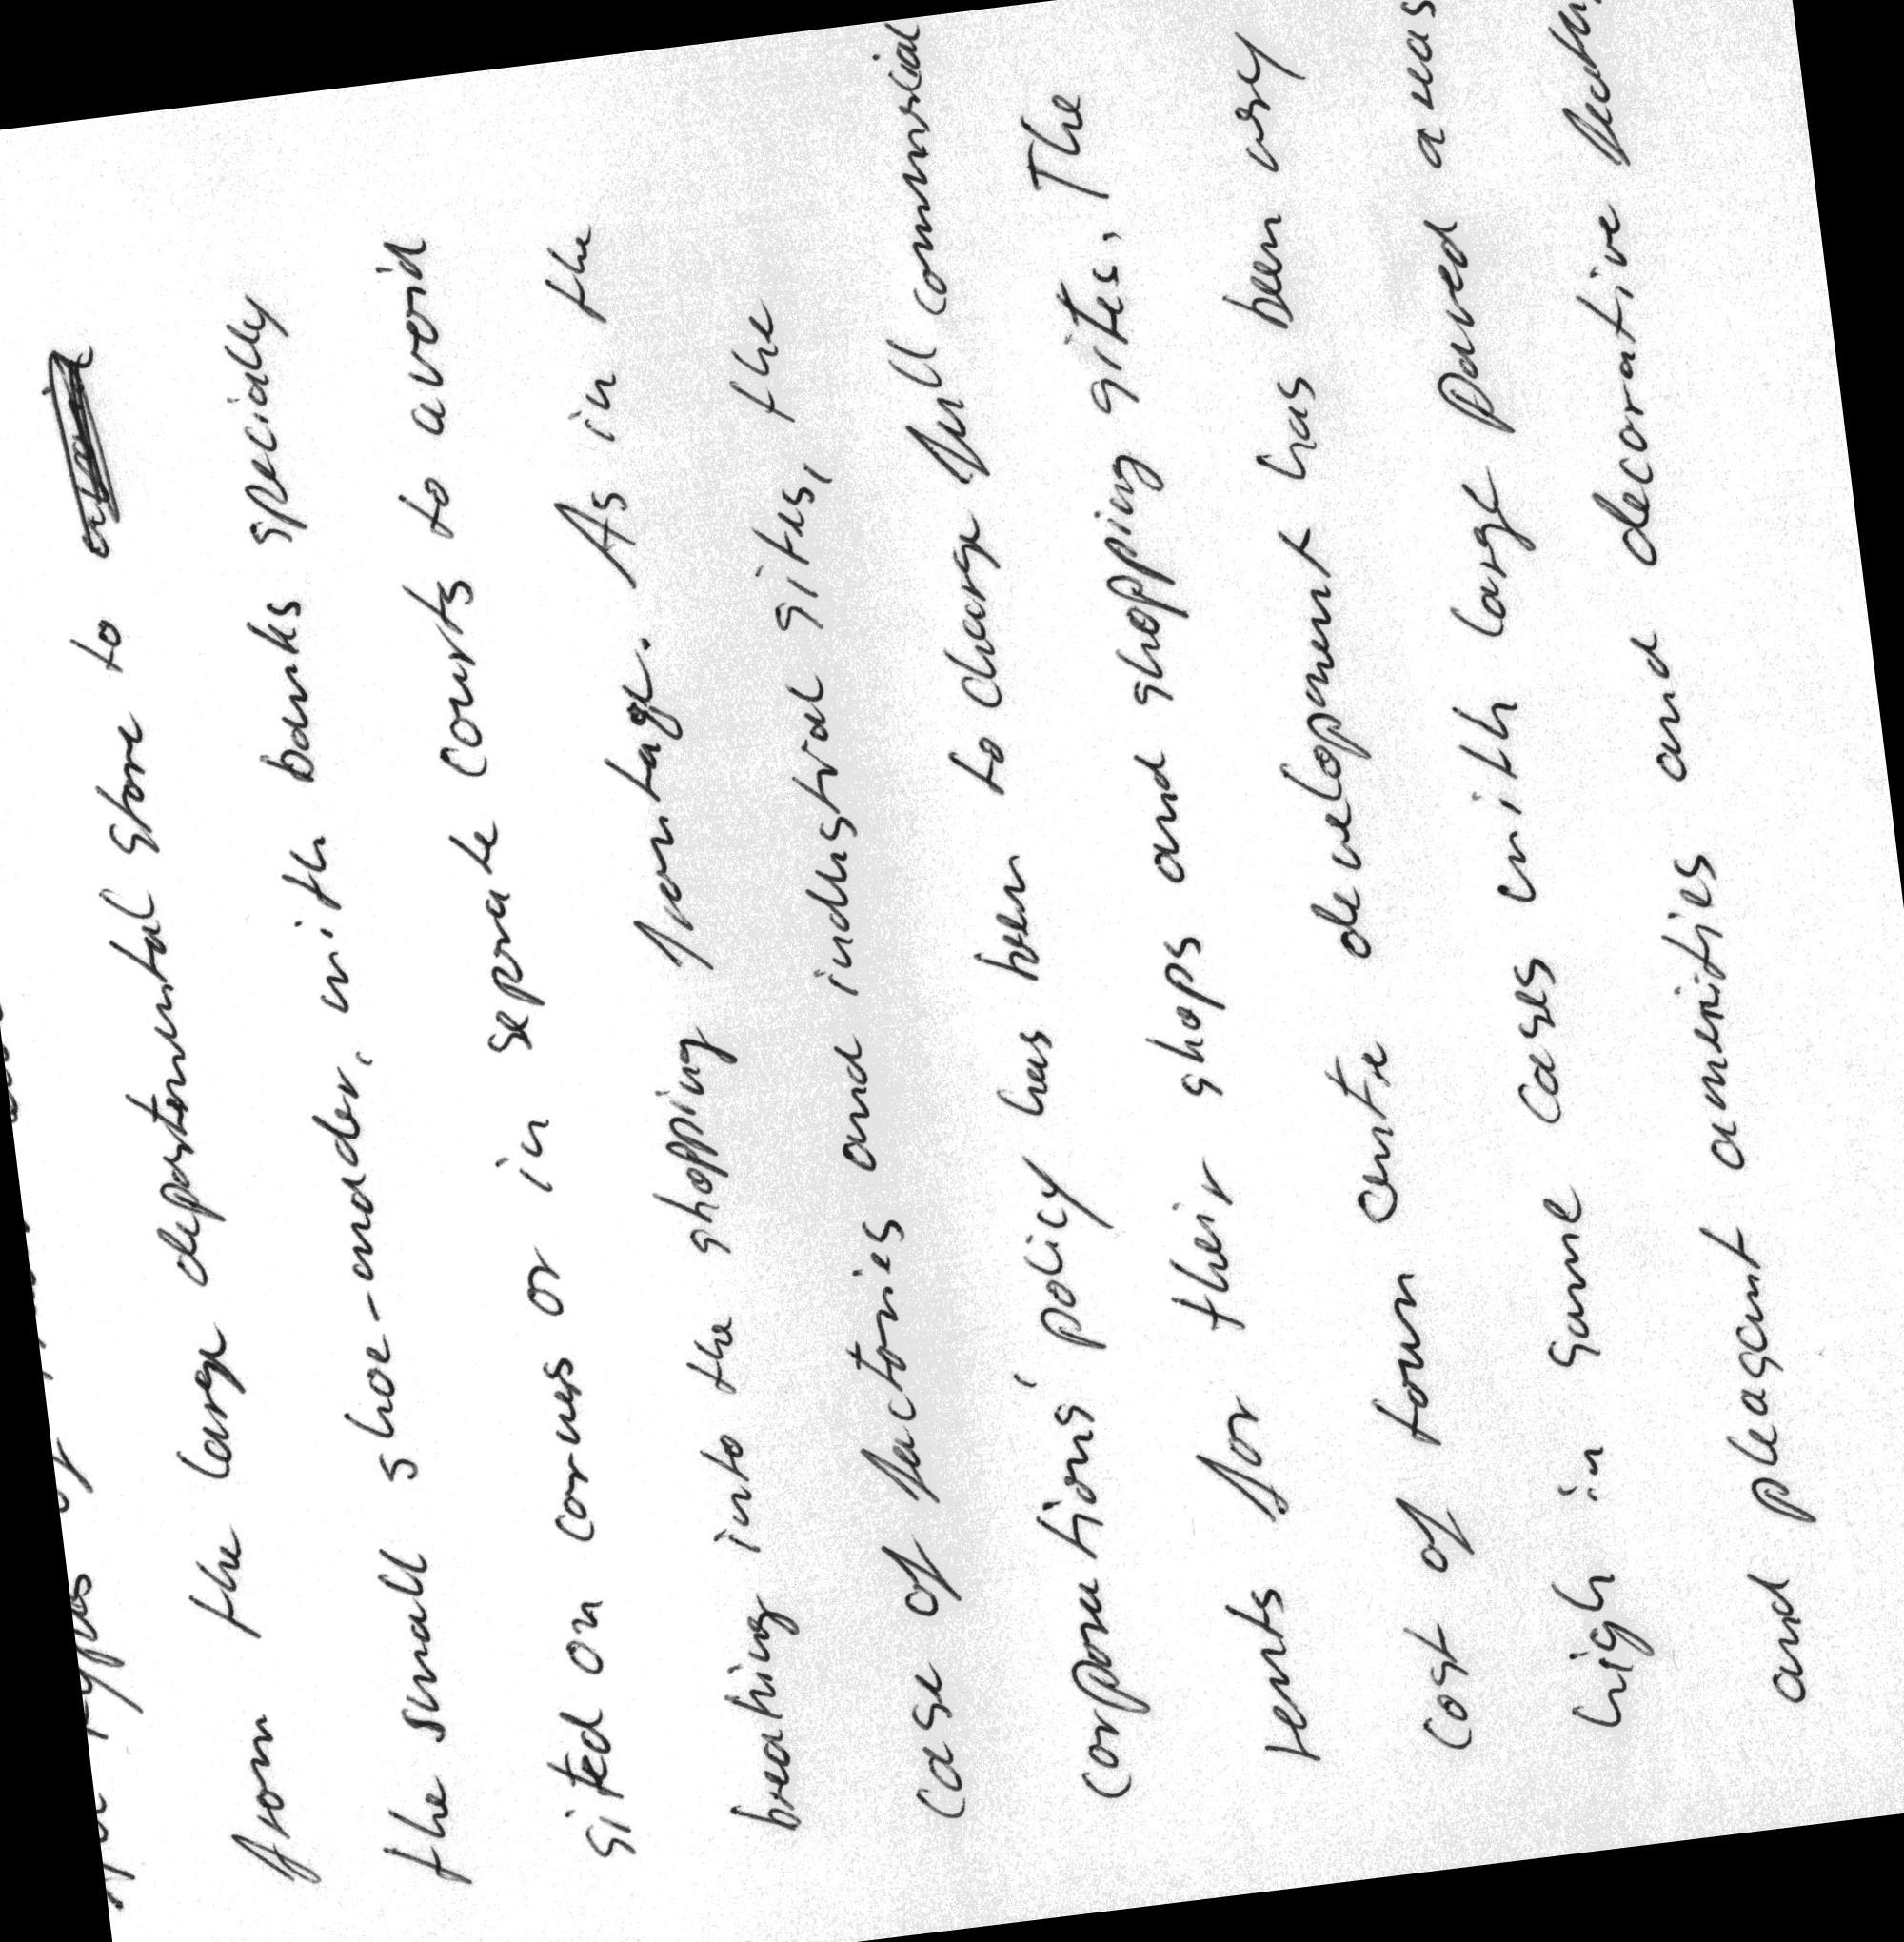 from the large departmental store to
the small shoe-mender, with banks specially
sited on corners or in seprate courts to avoid
breaking into the shopping frontage. As in the
case of factories and industrial sites, the
corporations' policy has been to charge full commercial
rents for their shops and shopping sites. The
cost of town centre development has been very
high in some cases with large paved areas
and pleasant amenities and decorative